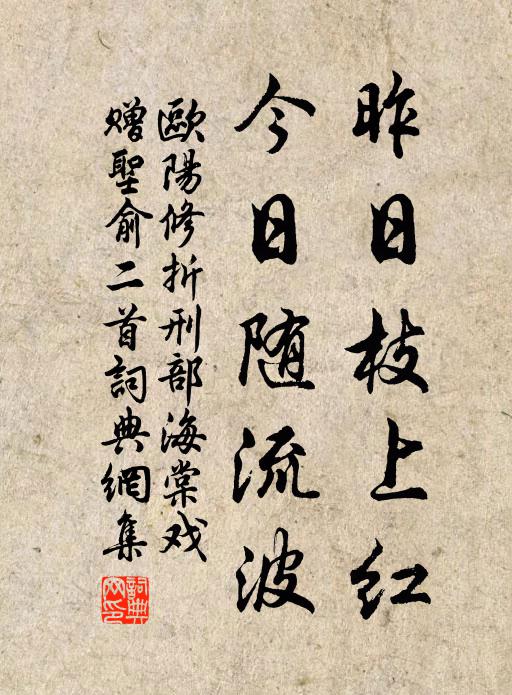 昨日枝上红
今日随流波
歐陽修折刑部海棠戏
赠聖俞二首詞典網集
詞典
网印